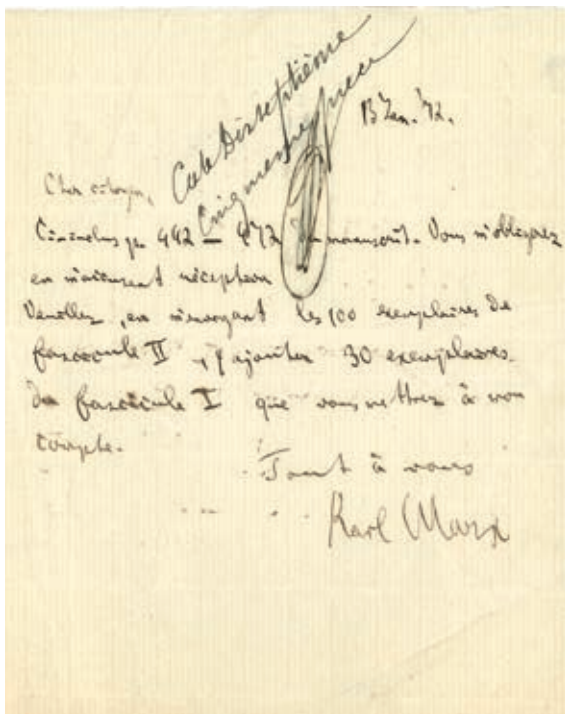 Cote Dixseptième
Cinquième pièce
13 Jan. 72.
Cher citoyen,
Ci-inclus pp. 442 — 472 du manuscrit. Vous m'obligerez
en m'accusant réception
Veuillez, en m'envoyant les 100 exemplaires de
fascicule II, y ajouter 30 exemplaires
du fascicule I que vous mettrez à mon
compte.
Tout à vous
Karl Marx